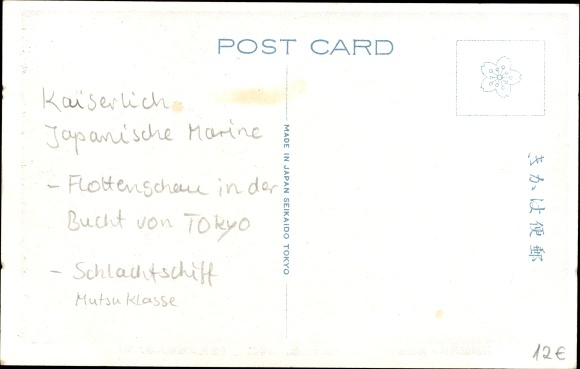 POST CARD
Kaiserlich
Japanische Marine
- Flottenschau in der
Bucht von Tokyo
- Schlachtschiff
Mutsu Klasse
MADE IN JAPAN SEIKAIDO TOKYO
きかは便郵
12€